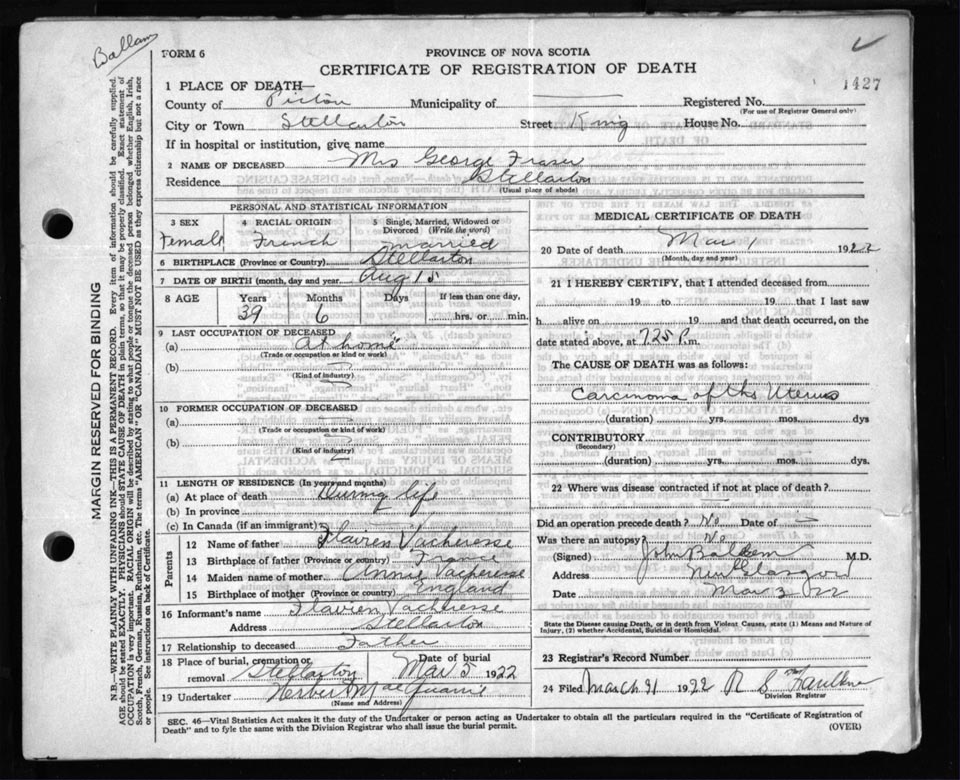 Ballam
FORM 6
PROVINCE OF NOVA SCOTIA
CERTIFICATE OF REGISTRATION OF DEATH
1427
1 PLACE OF DEATH—
County of Pictou Municipality of Registered No.
(For use of Registrar General only)
City or Town Stellarton Street King House No.
If in hospital or institution, give name
2 NAME OF DECEASED Mrs George Fraser
Residence Stellarton
(Usual place of abode)
PERSONAL AND STATISTICAL INFORMATION
3 SEX Female
4 RACIAL ORIGIN French
5 Single, Married, Widowed or Divorced (Write the word) married
6 BIRTHPLACE (Province or Country) Stellarton
7 DATE OF BIRTH (month, day and year) Aug 15
8 AGE Years 39 Months 6 Days If less than one day, hrs. or min.
9 LAST OCCUPATION OF DECEASED
(a) At home
(Trade or occupation or kind or work)
(b)
(Kind of industry)
10 FORMER OCCUPATION OF DECEASED
(a)
(Trade or occupation or kind of work)
(b)
(Kind of industry)
11 LENGTH OF RESIDENCE (In years and months)
(a) At place of death During life
(b) In province
(c) In Canada (if an immigrant)
Parents
12 Name of father Flavien Vacheresse
13 Birthplace of father (Province or country) France
14 Maiden name of mother Annie Vacheresse
15 Birthplace of mother (Province or country) England
16 Informant's name Flavien Vacheresse
Address Stellarton
17 Relationship to deceased Father
18 Place of burial, cremation or removal Stellarton Date of burial Mar 5 1922
19 Undertaker Herbert
(Name and Address)
MEDICAL CERTIFICATE OF DEATH
20 Date of death Mar 1 1922
(Month, day and year)
21 I HEREBY CERTIFY, that I attended deceased from
19 to 19 that I last saw
h alive on 19 and that death occurred, on the
date stated above, at 7.25 P. m.
The CAUSE OF DEATH was as follows:
Carcinoma of the Uterus
(duration) yrs. mos. dys
CONTRIBUTORY
(Secondary)
(duration) yrs. mos. dys.
22 Where was disease contracted if not at place of death?
Did an operation precede death? No Date of
Was there an autopsy No
(Signed) John Ballem M.D.
Address New Glasgow
Date Mar 3 22
State the Disease causing Death, or in death from Violent Causes, state (1) Means and Nature of Injury, (2) whether Accidental, Suicidal or Homicidal.
23 Registrar's Record Number
24 Filed March 31 1922 R S Faulkner
Division Registrar
SEC. 46—Vital Statistics Act makes it the duty of the Undertaker or person acting as Undertaker to obtain all the particulars required in the "Certificate of Registration of
Death" and to fyle the same with the Division Registrar who shall issue the burial permit.
(OVER)
MARGIN RESERVED FOR BINDING
N.B.—WRITE PLAINLY WITH UNFADING INK—THIS IS A PERMANENT RECORD. Every item of information should be carefully supplied.
AGE should be stated EXACTLY. PHYSICIANS should STATE CAUSE OF DEATH in plain terms, so that it may be properly classified. Exact statement of
OCCUPATION is very important. RACIAL ORIGIN will be described by stating to what people or tongue the deceased person belonged whether English, Irish,
Scotch, French, German, Russian, Ruthenian, etc. The terms "AMERICAN" or "CANADIAN" MUST NOT BE USED as they express citizenship but not a race
or people. See instructions on back of Certificate.